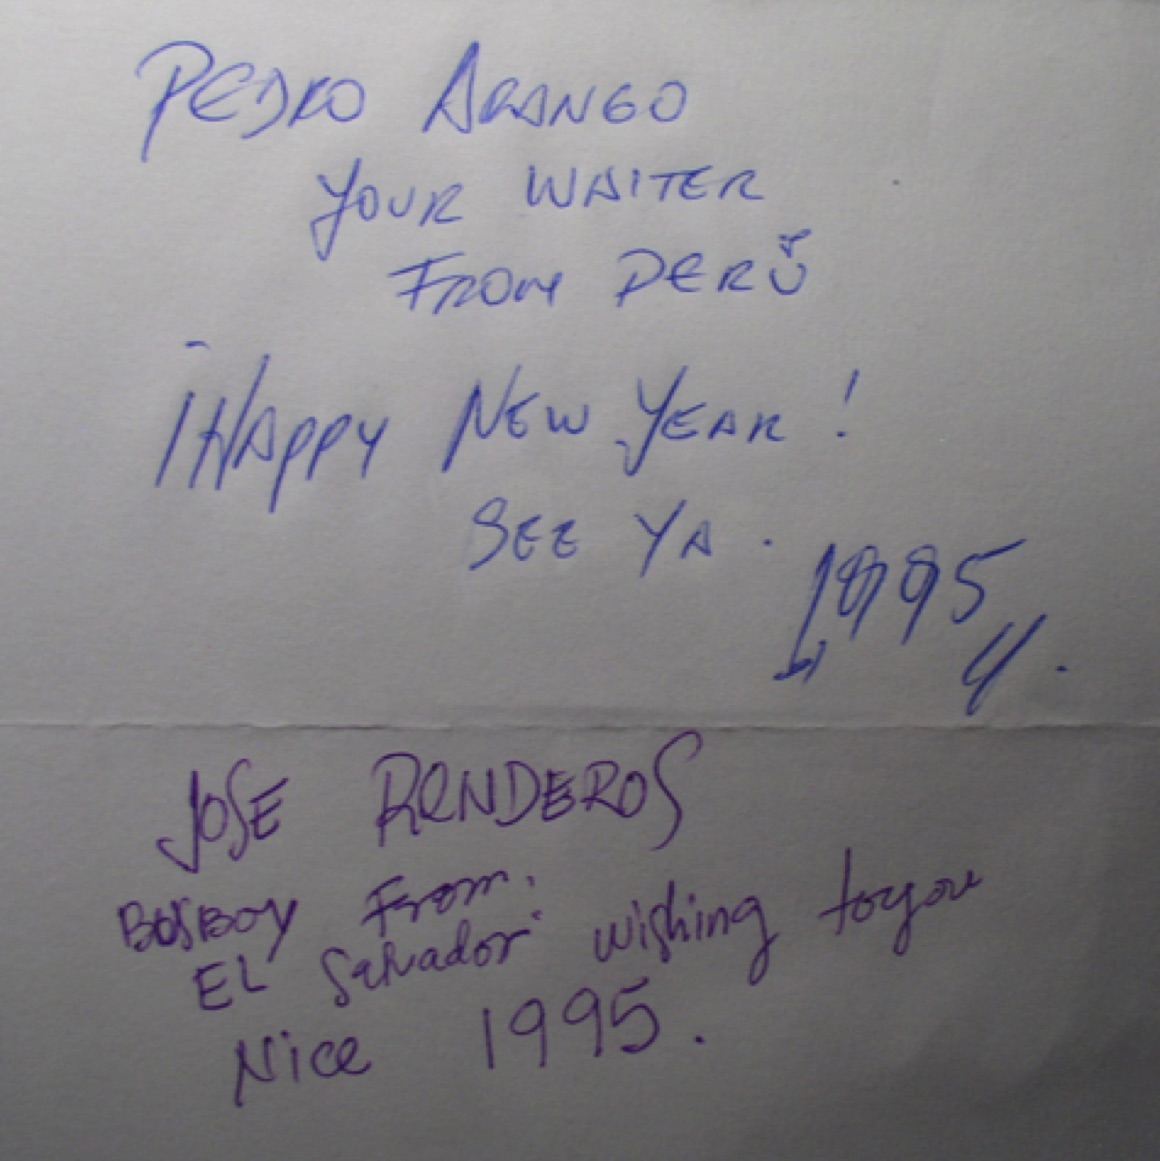 PEDRO ARANGO
YOUR WAITER
FROM PERÚ
¡HAPPY NEW YEAR!
SEE YA.
1995
JOSE RENDEROS
BUSBOY From.
EL Salvador wishing to you
Nice 1995.